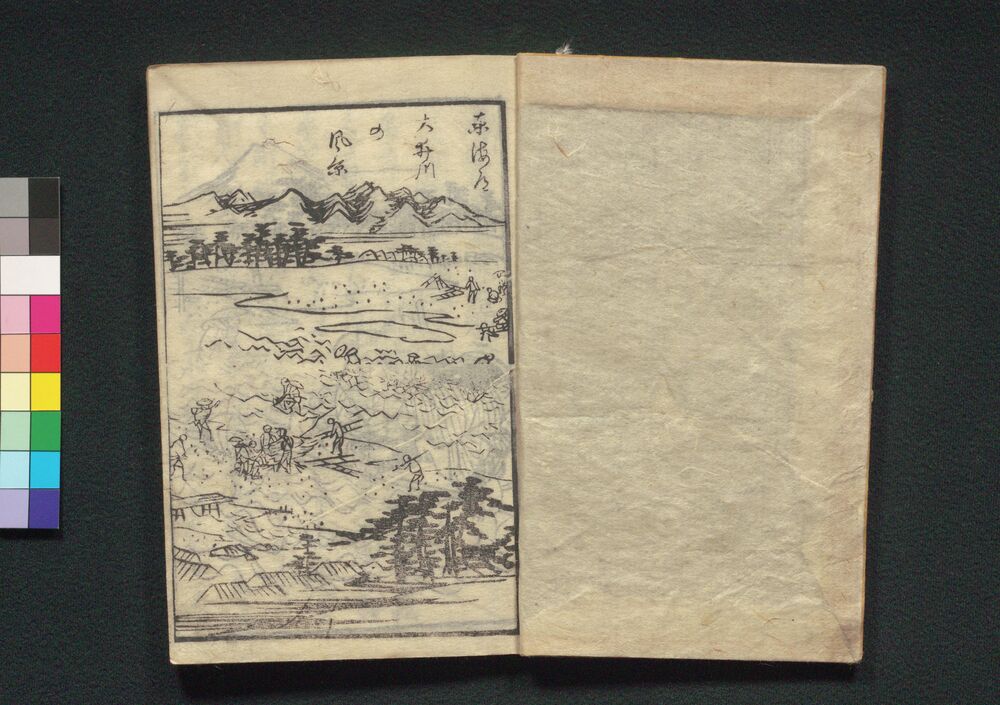 東海道
大井川
の
風景